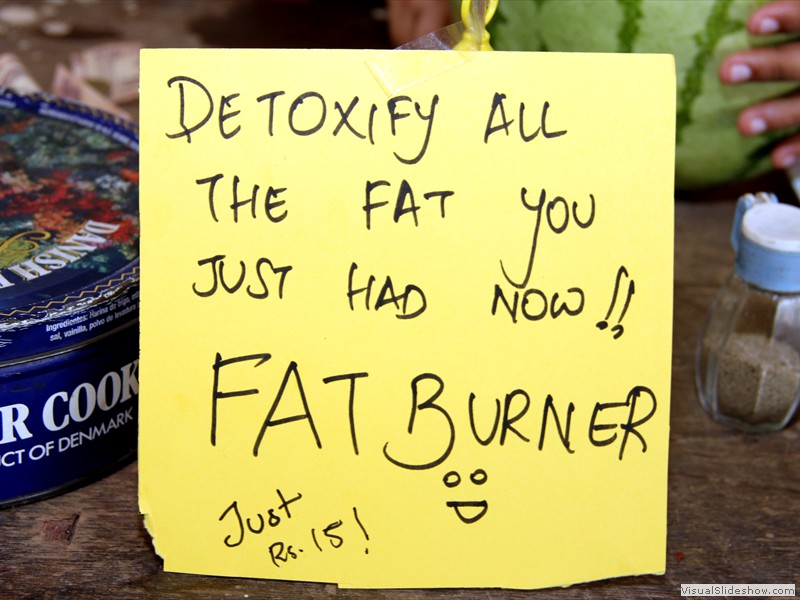 DETOXIFY ALL
THE FAT YOU
JUST HAD NOW!!
FAT BURNER
Just
Rs. 15!
DANISH
Ingredientes: Harina de trigo,
sal, vainilla, polvo de levadura
R COOK
CT OF DENMARK
VisualSlideshow.com